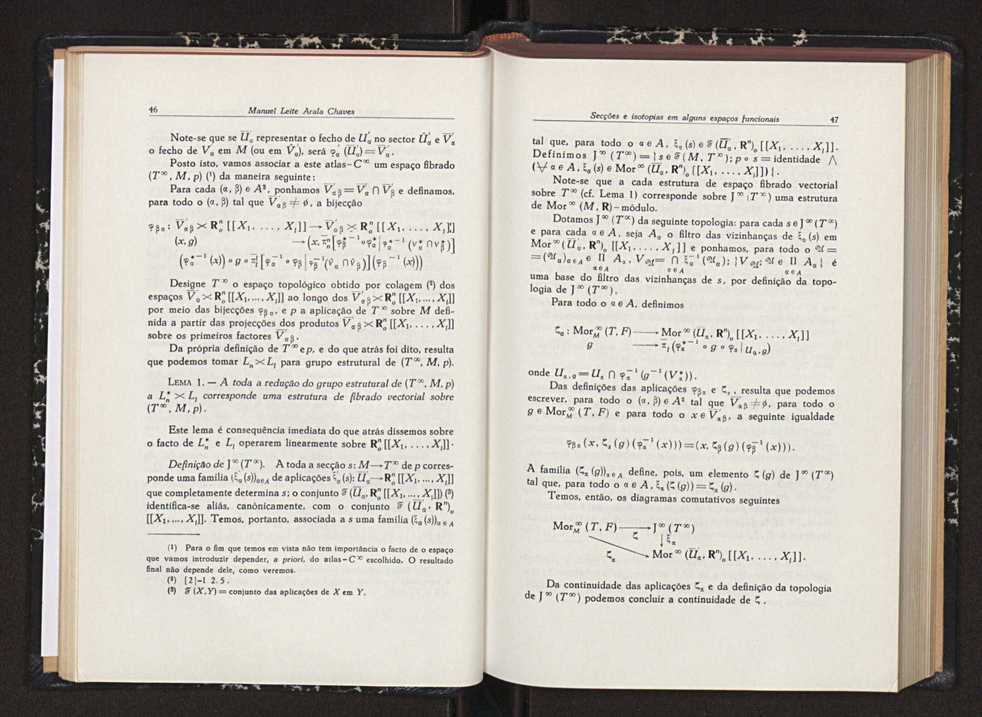 46 Manuel Leite Arala Chaves
Note-se que se U̅'α representar o fecho de U'α no sector Û'α e V̅'α
o fecho de V'α em M (ou em V̂'α), será φ'α (U̅'α) = V̅'α.
Posto isto, vamos associar a este atlas-C∞ um espaço fibrado
(T∞, M, p) (¹) da maneira seguinte:
Para cada (α, β) ∈ A², ponhamos V̅'αβ = V̅'α ∩ V̅'β e definamos,
para todo o (α, β) tal que V̅'αβ ≠ ø, a bijecção
φβα : V̅'αβ × Rⁿₒ [[X1, . . . , Xl]] → V̅'αβ × Rⁿₒ [[X1, . . . , Xl]]
(x, g) → (x, πⁿα [φ*β⁻¹ ∘ φ*α | φ*α⁻¹ (V*α ∩ V*β)]
(φ*α⁻¹ (x)) ∘ g ∘ πl [φ̅α⁻¹ ∘ φ̅β | φ̅β⁻¹ (V̂α ∩ V̂β)] (φ̅β⁻¹ (x)))
Designe T∞ o espaço topológico obtido por colagem (²) dos
espaços V̅'α × Rⁿₒ [[X1, ..., Xl]] ao longo dos V̅'αβ × Rⁿₒ [[X1, ..., Xl]]
por meio das bijecções φβα, e p a aplicação de T∞ sobre M defi-
nida a partir das projecções dos produtos V̅'αβ × Rⁿₒ [[X1, . . . , Xl]]
sobre os primeiros factores V̅'αβ.
Da própria definição de T∞ e p, e do que atrás foi dito, resulta
que podemos tomar Ln × Ll para grupo estrutural de (T∞, M, p).
LEMA 1. — A toda a redução do grupo estrutural de (T∞, M, p)
a L*n × Ll corresponde uma estrutura de fibrado vectorial sobre
(T∞, M, p).
Este lema é consequência imediata do que atrás dissemos sobre
o facto de L*n e Ll operarem linearmente sobre Rⁿₒ [[X1, . . . , Xl]].
Definição de J∞ (T∞). A toda a secção s: M → T∞ de p corres-
ponde uma família (ξα (s))α∈A de aplicações ξα (s): U̅'α → Rⁿₒ [[X1, ..., Xl]]
que completamente determina s; o conjunto ℱ (U̅α, Rⁿₒ [[X1, ..., Xl]]) (³)
identifica-se aliás, canònicamente, com o conjunto ℱ (U̅'α, Rⁿ)ₒ
[[X1, ..., Xl]]. Temos, portanto, associada a s uma família (ξα (s))α∈A
(¹) Para o fim que temos em vista não tem importância o facto de o espaço
que vamos introduzir depender, a priori, do atlas-C∞ escolhido. O resultado
final não depende dele, como veremos.
(²) [2]-1 2.5.
(³) ℱ (X, Y) = conjunto das aplicações de X em Y.
Secções e isotopias em alguns espaços funcionais 47
tal que, para todo o α ∈ A, ξα (s) ∈ ℱ (U̅α, Rⁿ)ₒ [[X1, . . . , Xl]].
Definimos J∞ (T∞) = { s ∈ ℱ (M, T∞); p ∘ s = identidade ∧
(∀ α ∈ A, ξα (s) ∈ Mor∞ (U̅α, Rⁿ)ₒ [[X1, . . . , Xl]]) }.
Note-se que a cada estrutura de espaço fibrado vectorial
sobre T∞ (cf. Lema 1) corresponde sobre J∞ (T∞) uma estrutura
de Mor∞ (M, R)-módulo.
Dotamos J∞ (T∞) da seguinte topologia: para cada s ∈ J∞ (T∞)
e para cada α ∈ A, seja Aα o filtro das vizinhanças de ξα (s) em
Mor∞ (U̅α, Rⁿ)ₒ [[X1, . . . , Xl]] e ponhamos, para todo o 𝒰 =
= (𝒰α)α∈A ∈ Π α∈A Aα, V𝒰 = ∩ α∈A ξα⁻¹ (𝒰α); {V𝒰; 𝒰 ∈ Π α∈A Aα} é
uma base do filtro das vizinhanças de s, por definição da topo-
logia de J∞ (T∞).
Para todo o α ∈ A, definimos
ζα : Mor∞M (T, F) → Mor∞ (U̅α, Rⁿ)ₒ [[X1, . . . , Xl]]
g → πl (φ*α⁻¹ ∘ g ∘ φα | Uα,g)
onde Uα,g = Uα ∩ φα⁻¹ (g⁻¹ (V*α)).
Das definições das aplicações φβα e ζα, resulta que podemos
escrever, para todo o (α, β) ∈ A² tal que V̅αβ ≠ ø, para todo o
g ∈ Mor∞M (T, F) e para todo o x ∈ V̅αβ, a seguinte igualdade
φβα (x, ζα (g) (φα⁻¹ (x))) = (x, ζβ (g) (φβ⁻¹ (x))).
A família (ζα (g))α∈A define, pois, um elemento ζ (g) de J∞ (T∞)
tal que, para todo o α ∈ A, ξα (ζ (g)) = ζα (g).
Temos, então, os diagramas comutativos seguintes
Mor∞M (T, F) → J∞ (T∞)
ζ ↓ ξα
ζα Mor∞ (U̅α, Rⁿ)ₒ [[X1, . . . , Xl]].
Da continuidade das aplicações ζα e da definição da topologia
de J∞ (T∞) podemos concluir a continuidade de ζ.